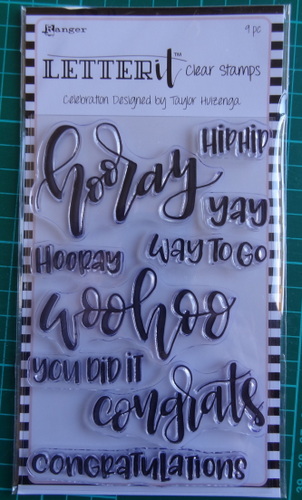 Ranger
9 pc
LETTER it™ Clear Stamps
Celebration Designed by Taylor Huizenga
HIPHIP
hooray
yay
HOORAY
WAY TO GO
woohoo
YOU DID IT
congrats
CONGRATULATIONS